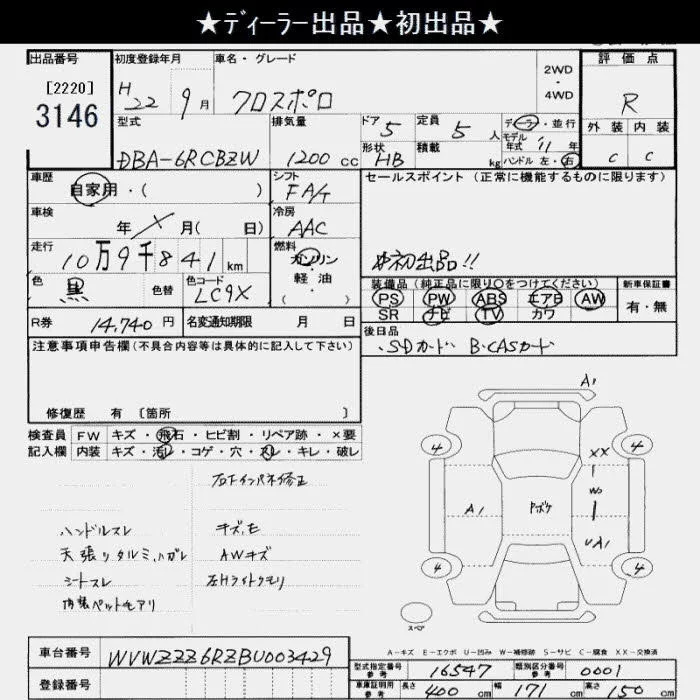 ★ディーラー出品★初出品★
出品番号 初度登録年月 車名・グレード 評価点
[2220] H22 9月 クロスポロ 2WD・4WD R
3146
型式 排気量 ドア 5 定員 5人 ディーラー・並行 外装 内装
DBA-6RCBZW 1200cc 形状 HB 積載 kg モデル年式 '11年 ハンドル 左・右 C C
車歴 自家用・( ) シフト FA/T セールスポイント (正常に機能するものに限ります)
車検 年 月( 日) 冷房 AAC
走行 10万9千841km 燃料 ガソリン 軽油・( ) #初出品!!
色 黒 色替 色コード LC9X 装備品(純正品に限り○をつけてください) 新車保証書
PS PW ABS エアB AW 有・無
SR ナビ TV カワ
R券 14,740円 名変通知期限 月 日 後日品
注意事項申告欄(不具合内容等は具体的に記入して下さい) ・SDカード B-CASカード
修復歴 有 [箇所 ]
検査員 FW キズ・飛石・ヒビ割・リペア跡・×要
記入欄 内装 キズ・汚レ・コゲ・穴・スレ・キレ・破レ
右Fインパネ修正
ハンドルスレ キズ,E
天張りタルミ,ハガレ AWキズ
シートスレ 左Hライトクモリ
内装ペットモアリ
A1
4 4
XX
W
A1 Pボケ
UA1
4 4
スペア
A-キズ E-エクボ U-凹み W-補修跡 S-サビ C-腐食 XX-交換済
車台番号 WVWZZZ6RZBU003429 型式指定番号 参考 16547 類別区分番号 参考 0001
登録番号 車庫証明用 参考 長さ 400cm 幅 171cm 高さ 150cm